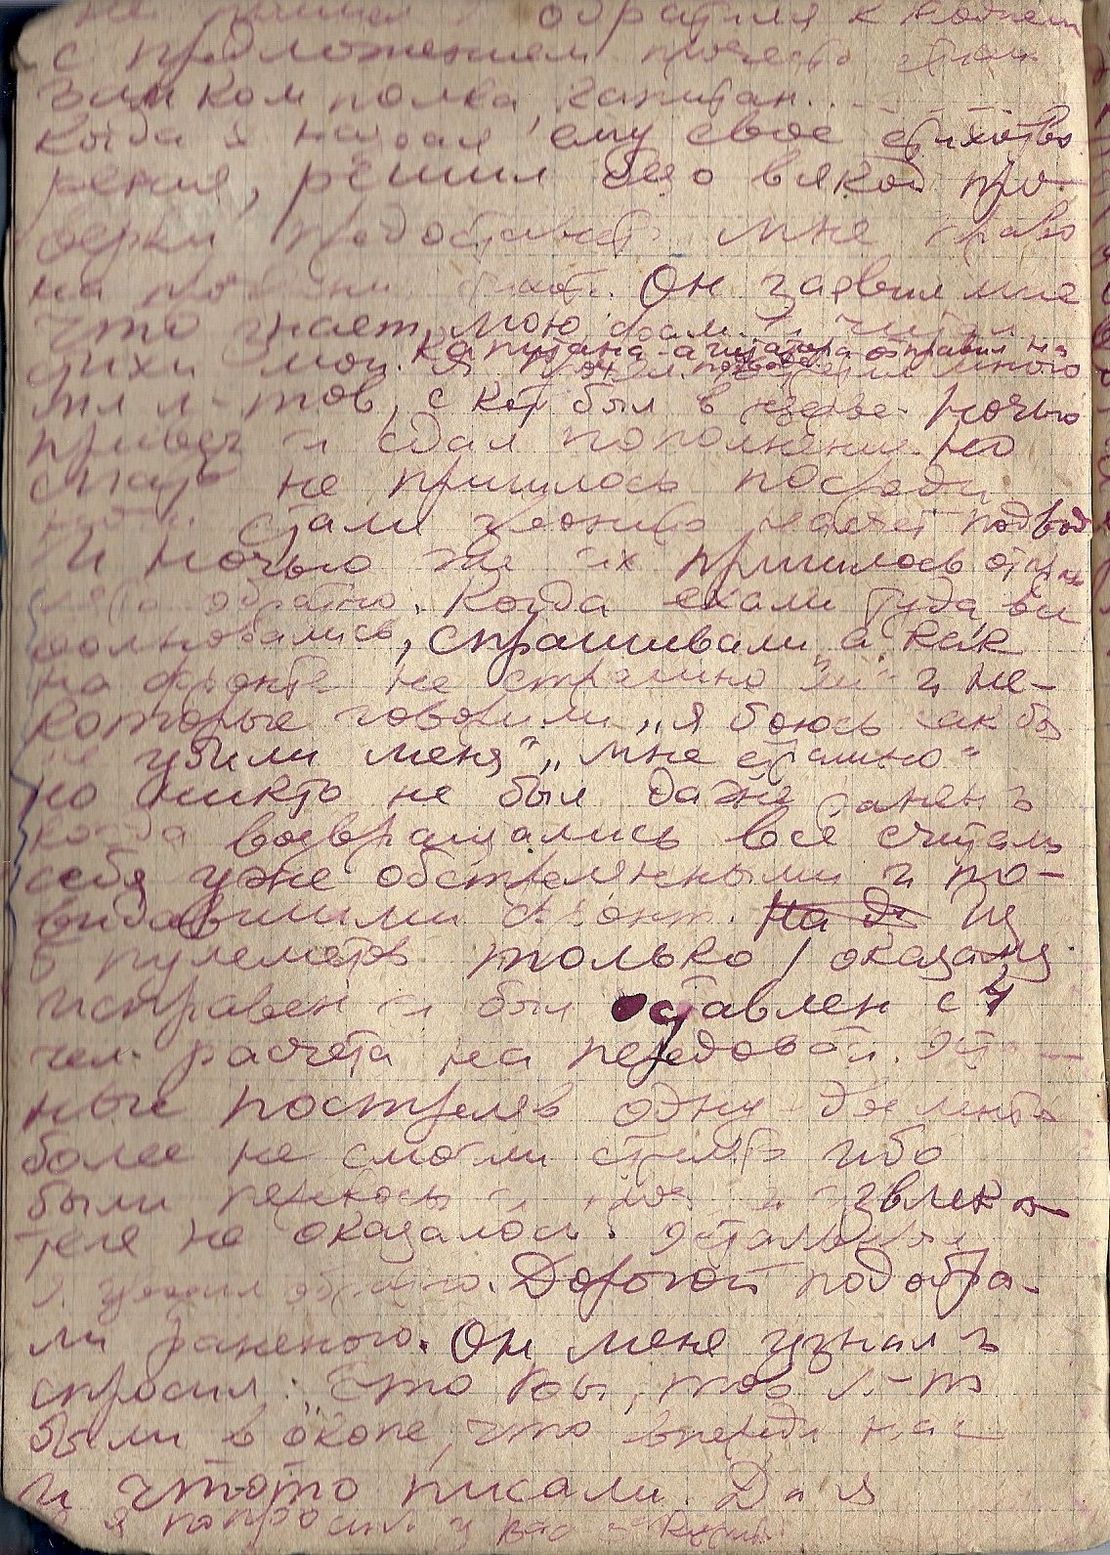 не обратился к
с предложением прочесть стихи
Зам ком полка капитан...
Когда я напомнил ему свое стихотво
рения, решил безо всякой про-
верки предоставить мне право
на Он заявил мне
что знает мою фам. и читал
стихи мои. Капитана-агитатора отправил на
я прочел много
мл л-тов, с кот был в Ночью
привез и сдал пополнение. Но
спать не пришлось посреди
ночи стали подвод
И ночью же их пришлось отправ
лять обратно. Когда ехали туда все
волновались, спрашивали а как
на фронте не страшно и не-
которые говорили „я боюсь как бы
не убили меня", „мне страшно"
но никто не был даже ранен и
когда возвращались все считали
себя уже обстрелянными и по-
видавшими фронт. На Из
5 пулеметов только 1 оказался
исправен и был оставлен с 4
чел. расчета на передовой. Осталь-
ные постреляв одну две ленты
более не смогли стрелять ибо
были перекосы и извлека
теля не оказалось. Остальных
я обратно. Дорогой подобра-
ли раненого. Он меня узнал и
спросил: „Это Вы, тов л-т
были в окопе, что впереди нас
и чтото писали. Да я
я попросил у вас